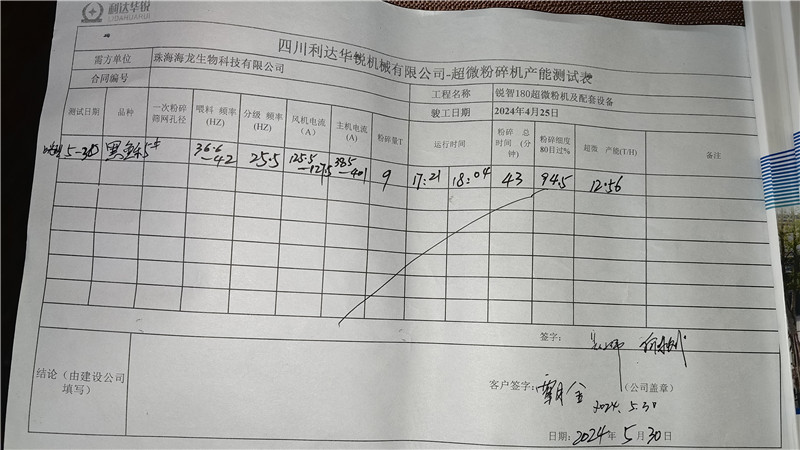 利达华锐
LIDAHUARUI
四川利达华锐机械有限公司-超微粉碎机产能测试表
需方单位 珠海海龙生物科技有限公司 工程名称 锐智180超微粉机及配套设备
合同编号 竣工日期 2024年4月25日
测试日期 品种 一次粉碎筛网孔径 喂料 频率(HZ) 分级 频率(HZ) 风机电流(A) 主机电流(A) 粉碎量T 运行时间 粉碎 总时间 (分钟) 粉碎细度80目过% 超微 产能(T/H) 备注
5-30 黑 5# 36.6-42 25.5 125.5-127.5 385-401 9 17:21 18:04 43 94.5 12.56
签字:
结论(由建设公司填写)
客户签字: 金 (公司盖章)
2024.5.30
日期: 2024年5月30日